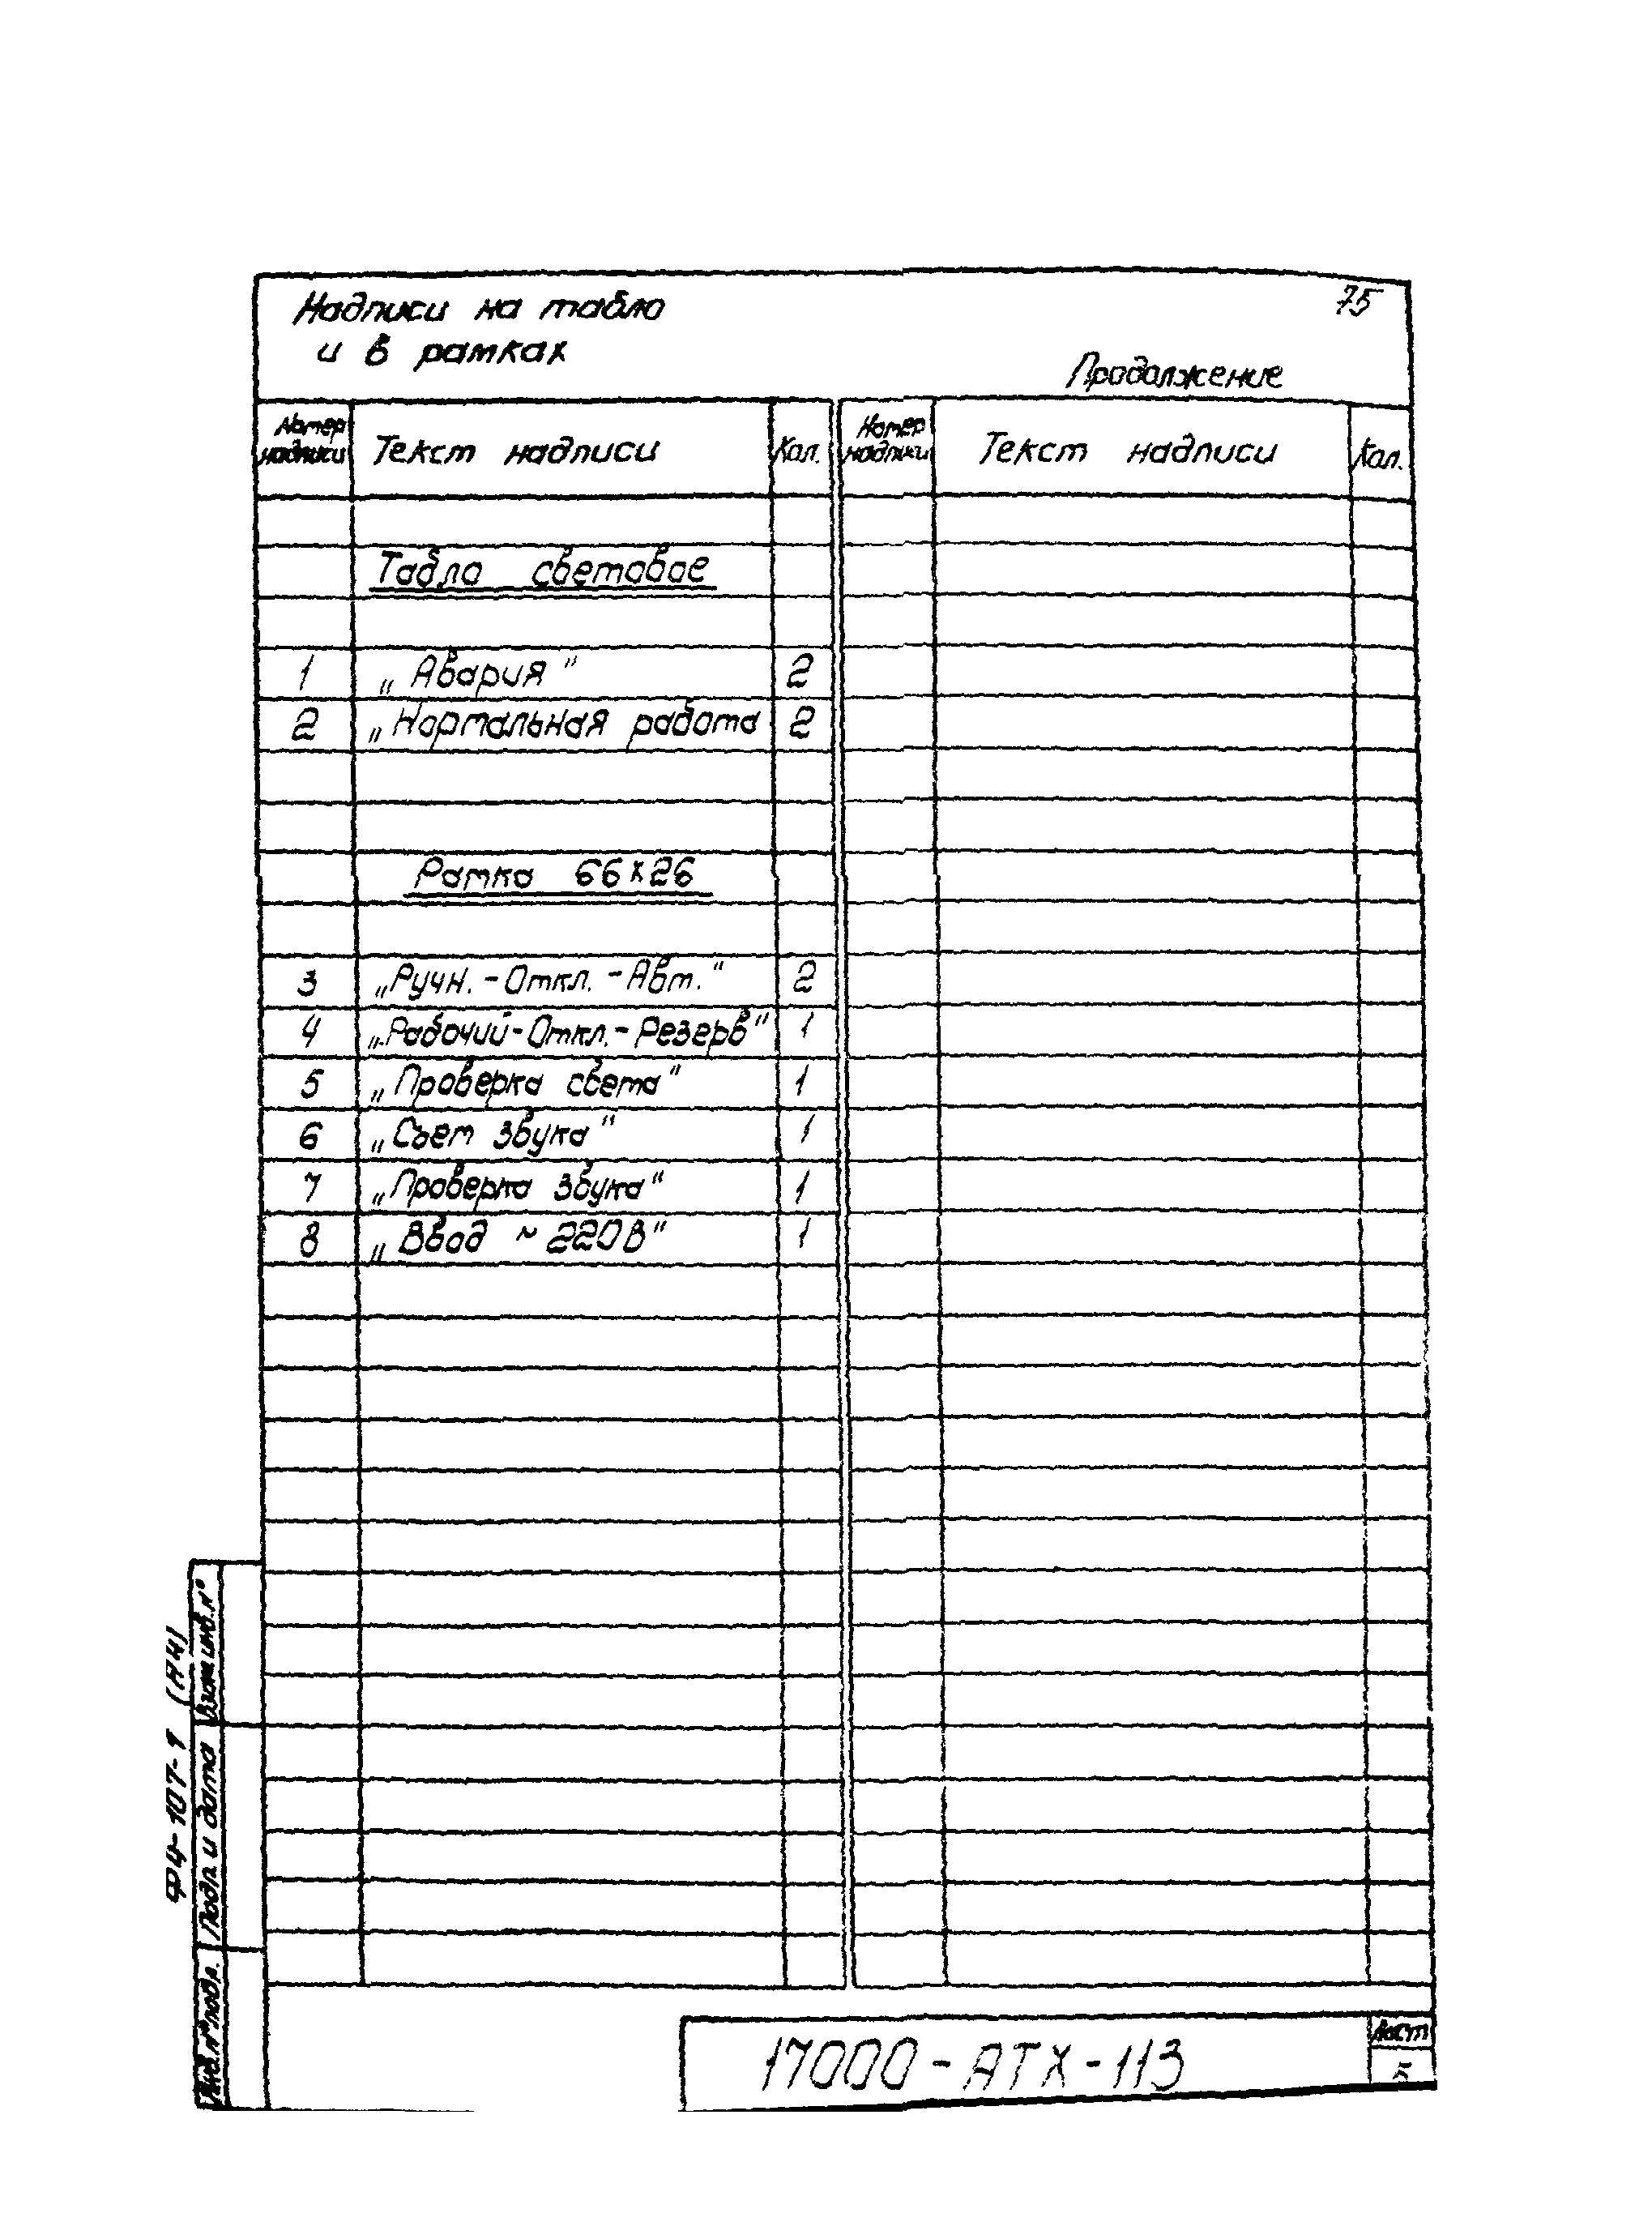 75
Надписи на табло
и в рамках
Продолжение
Номер надписи Текст надписи Кол. Номер надписи Текст надписи Кол.
Табло световое
1 „Авария" 2
2 „Нормальная работа 2
Рамка 66x26
3 „Ручн. - Откл. - Авт." 2
4 „Рабочий - Откл. - Резерв" 1
5 „Проверка света" 1
6 „Съем звука" 1
7 „Проверка звука" 1
8 „Ввод ~ 220В" 1
Ф4-107-1 (А4)
Взам инв. №
Подп и дата
Инв. № подл.
17000-АТХ-113
Лист
5